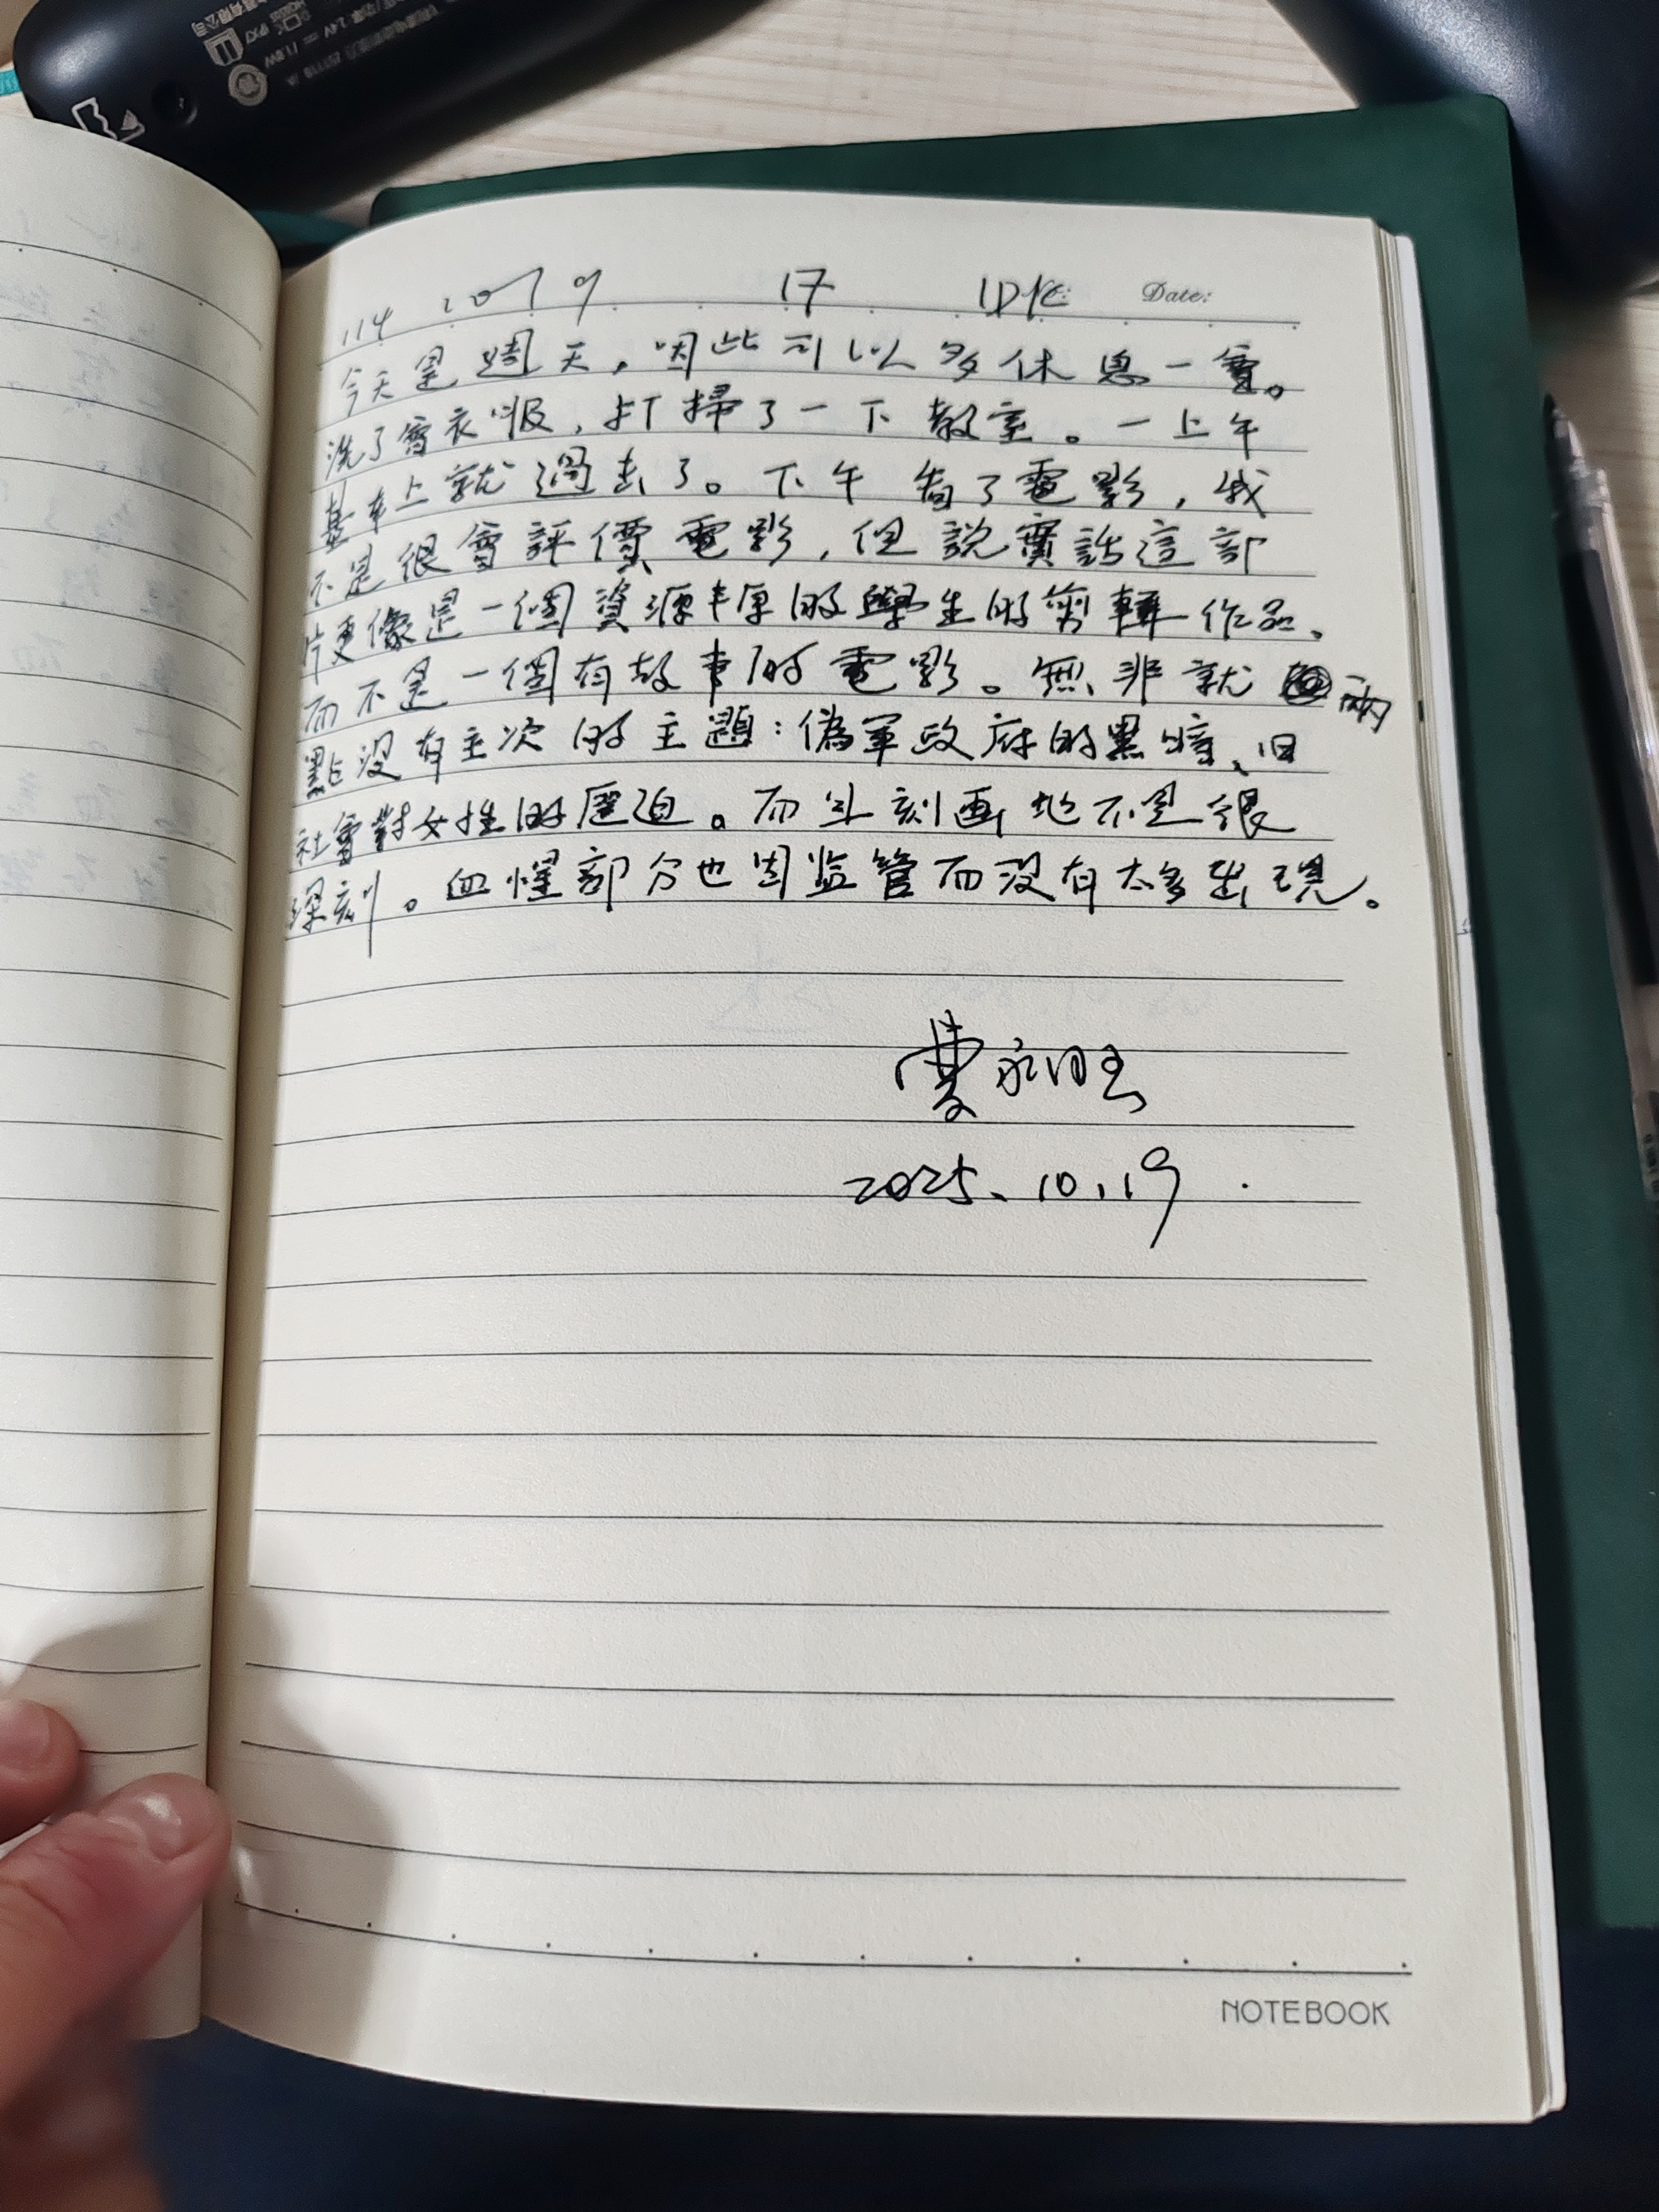 114 10 19 17 Date:
今天是週天，因此可以多休息一會。
洗了會衣服，打掃了一下教室。一上午
基本上就過去了。下午看了電影，我
不是很會評價電影，但說實話這部
片更像是一個資源丰厚的學生的剪輯作品、
而不是一個有故事的電影。無非就 兩
點沒有主次的主題：偽軍政府的黑暗、旧
社會對女性的壓迫。而且刻画地不是很
深刻。血腥部分也因监管而沒有太多出現。
曹永旺
2025.10.19
NOTEBOOK